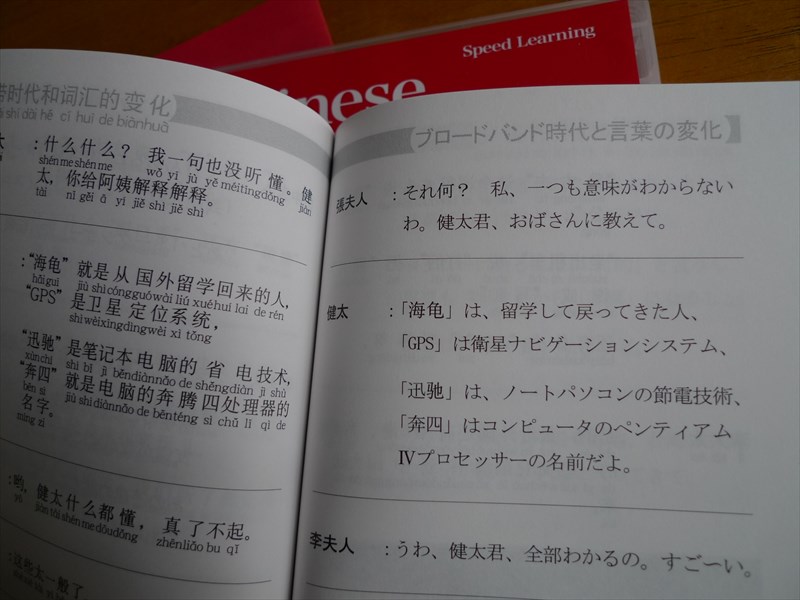 Speed Learning
inese
时代和词汇的变化
shí dài hé cí huì de biànhuà
太：什么什么？ 我一句也没听懂。健
shénmeshénme wǒ yí jù yě méitīngdǒng jiàn
太，你给阿姨解释解释。
tài nǐ gěi ā yí jiě shì jiě shì
：“海龟”就是从国外留学回来的人，
hǎi guī jiù shì cóngguówài liú xué huí lai de rén
“GPS”是卫星定位系统，
shì wèixīngdìngwèi xì tǒng
“迅驰”是笔记本电脑的省电技术，
xùnchí shì bǐ jì běndiànnǎo de shěngdiàn jì shù
“奔四”就是电脑的奔腾四处理器的
bēn sì jiù shì diànnǎo de bēnténg sì chǔ lǐ qì de
名字。
míng zi
：哟，健太什么都懂，真了不起。
yō jiàn tài shénme dōudǒng zhēnliǎo bu qǐ
：这些太一般了
ブロードバンド時代と言葉の変化】
張夫人 ：それ何？ 私、一つも意味がわからない
わ。健太君、おばさんに教えて。
健太 ：「海龟」は、留学して戻ってきた人、
「GPS」は衛星ナビゲーションシステム、
「迅驰」は、ノートパソコンの節電技術、
「奔四」はコンピュータのペンティアム
Ⅳプロセッサーの名前だよ。
李夫人 ：うわ、健太君、全部わかるの。すご～い。